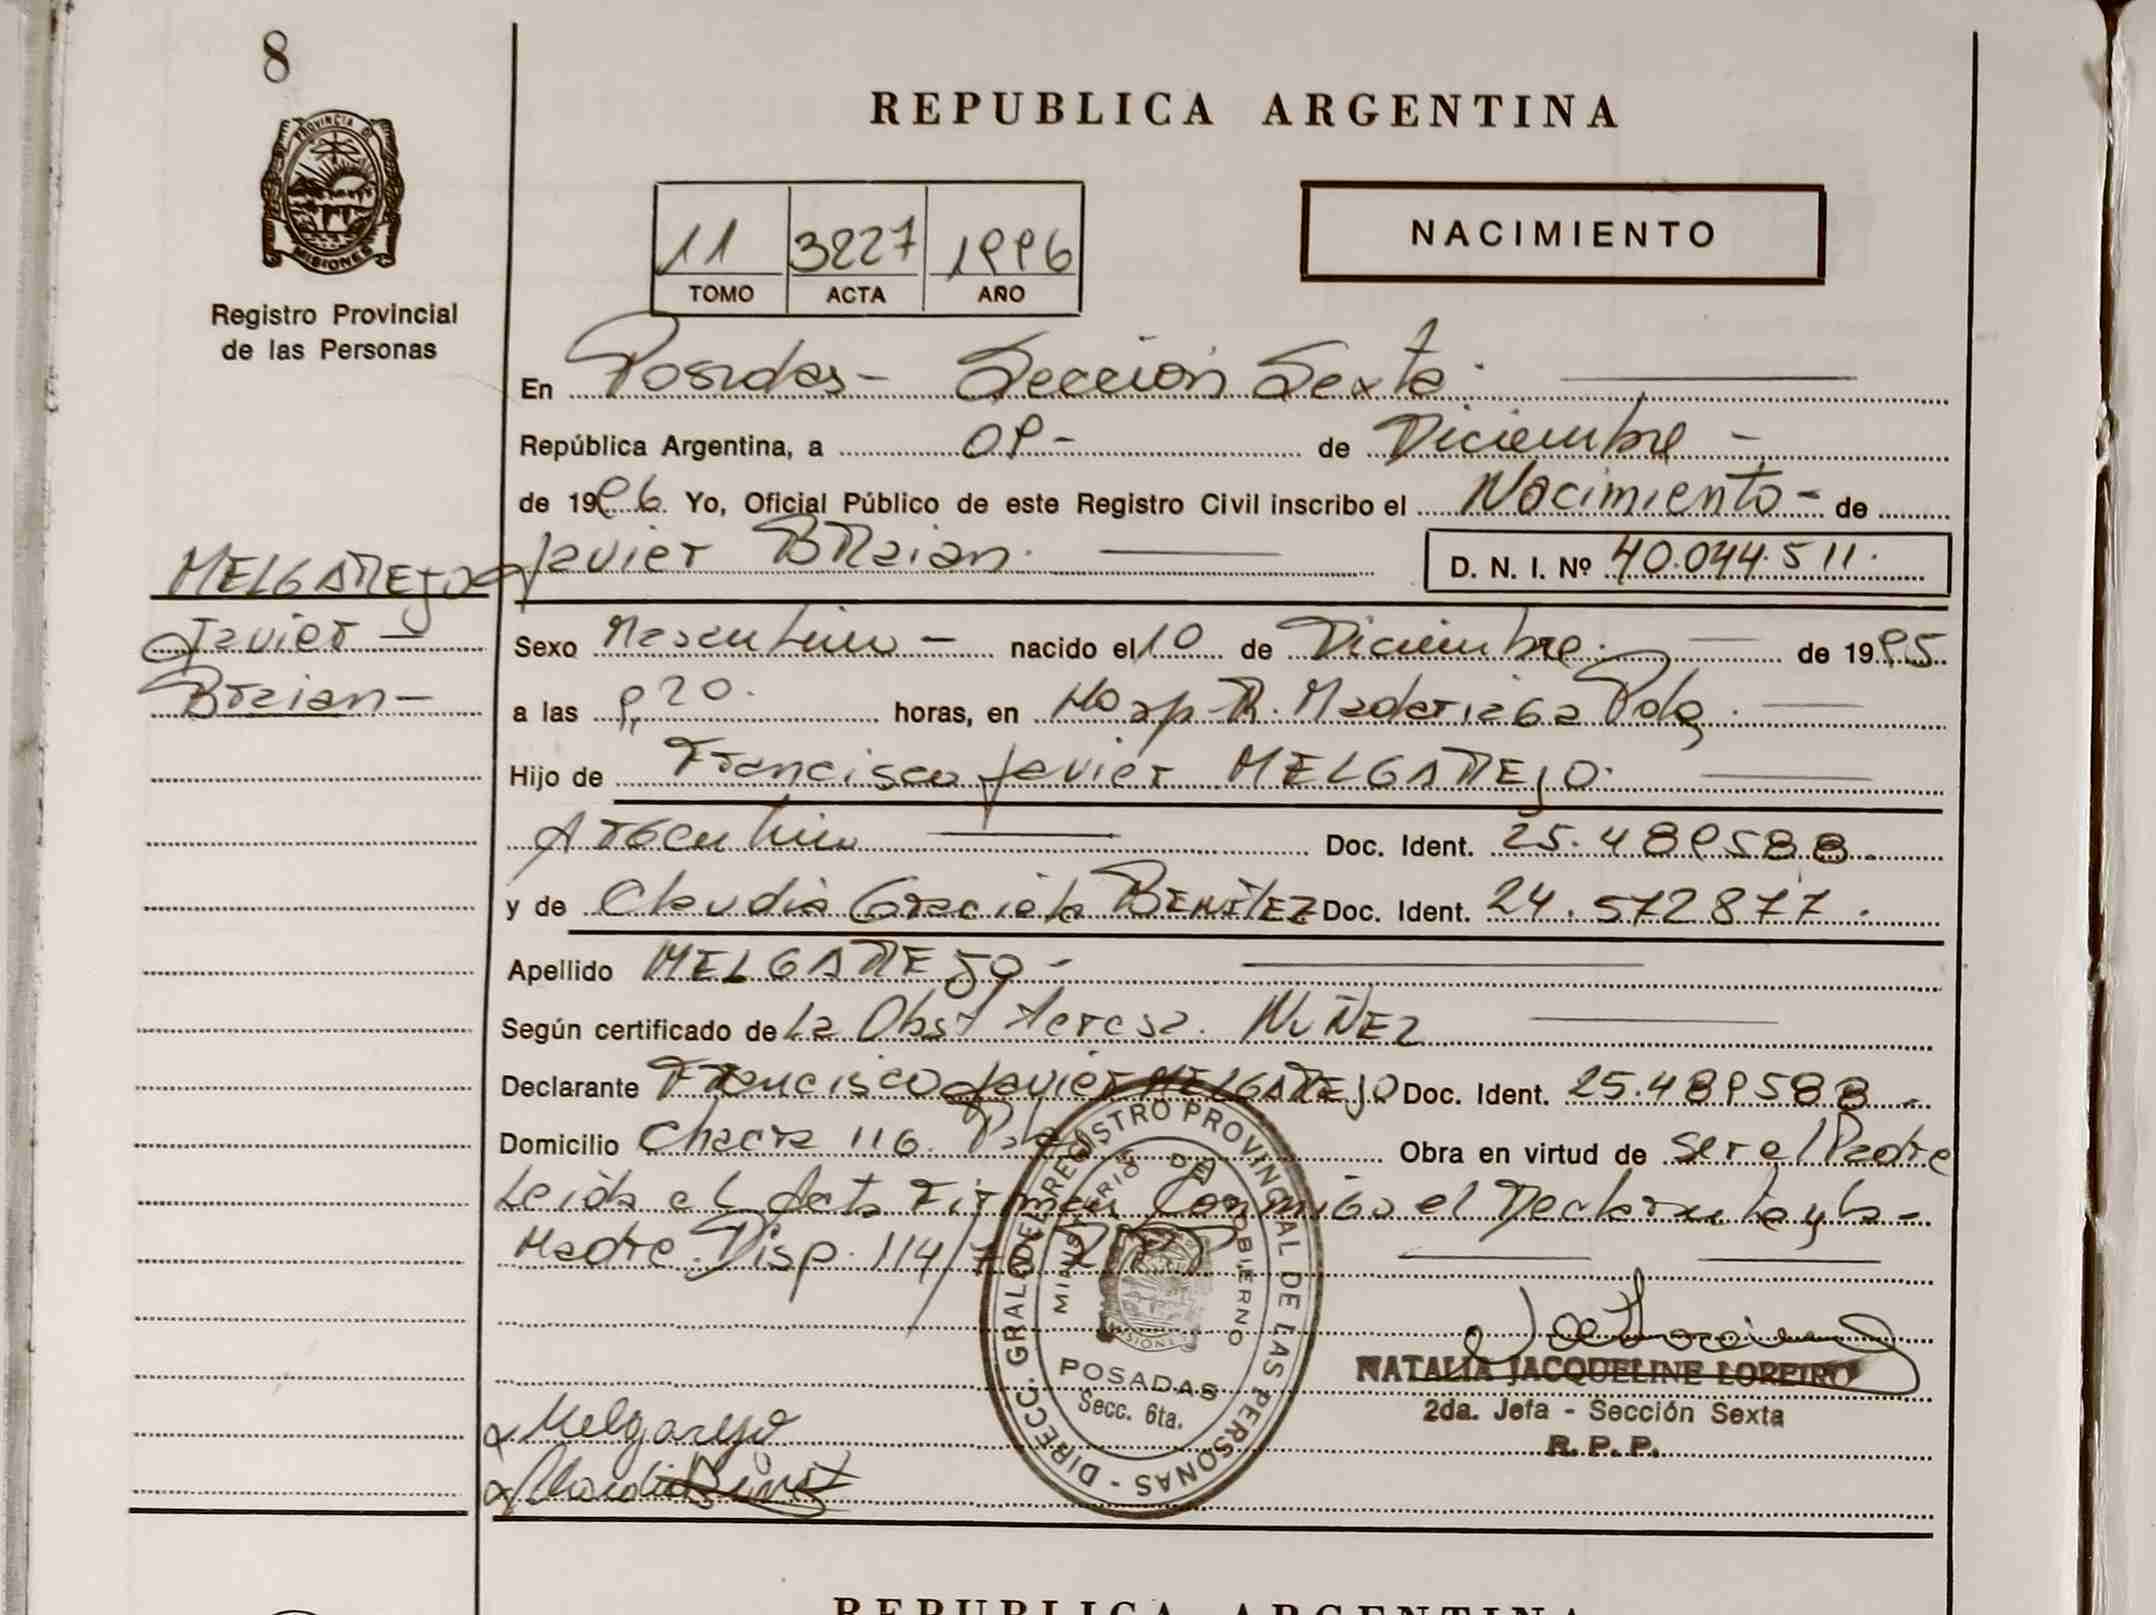 8
REPUBLICA ARGENTINA
PROVINCIA DE
MISIONES
Registro Provincial
de las Personas
11 3227 1996
TOMO ACTA AÑO
NACIMIENTO
En Posadas - Sección Sexta
República Argentina, a 09 - de Diciembre -
de 1996. Yo, Oficial Público de este Registro Civil inscribo el Nacimiento - de
Javier Braian. D. N. I. Nº 40.044.511.
MELGAREJO
Javier -
Braian -
Sexo Masculino - nacido el 10 de Diciembre. de 1995.
a las 9,20. horas, en Hosp R. Madariaga Pdas.
Hijo de Francisco Javier MELGAREJO.
Argentino Doc. Ident. 25.489588.
y de Claudia Graciela BENITEZ Doc. Ident. 24.572877.
Apellido MELGAREJO -
Según certificado de La Obst Teresa. NUÑEZ
Declarante Francisco Javier MELGAREJO Doc. Ident. 25.489588.
Domicilio Chacra 116. Obra en virtud de ser el Padre
Leida el Acta Firman Conmigo el Declarante y la -
Madre. Disp. 114/ RPP
DIRECC. GRAL. DEL REGISTRO PROVINCIAL DE LAS PERSONAS -
MINISTERIO DE GOBIERNO
MISIONES
POSADAS
Secc. 6ta.
NATALIA JACQUELINE LOREIRO
2da. Jefa - Sección Sexta
R. P. P.
Melgarejo
Claudia Benitez
REPUBLICA ARGENTINA